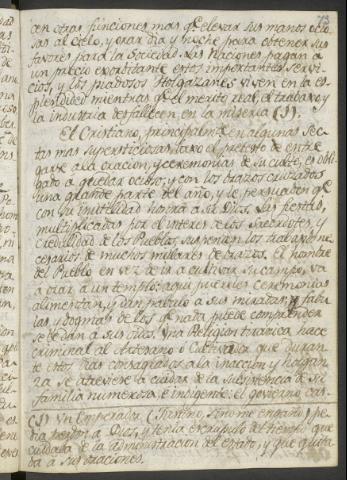 73
cen otras funciones mas q.e elevar sus manos ocio-
sas al Cielo, y orar dia y noche para obtener sus
favores para la Sociedad. Las Naciones pagan a
un precio exorbitante estos importantes servi-
cios, y los piadosos Holgazanes viven en la es-
plendidez mientras q.e el merito real, el trabajo y
la industria desfallecen en la miseria (1).
El Cristiano, principalmente en algunas Sec-
tas mas supersticiosas, baxo el pretexto de entre
garse a la oracion, y ceremonias de su culto, es obli-
gado a quedar ocioso, y con los brazos cruzados
una grande parte del año, y le persuaden q.e
con su inutilidad honra a su Dios. Las fiestas,
multiplicadas por el interes de los Sacerdotes y
credulidad de los Pueblos, suspenden los trabajos ne
cesarios de muchos millares de brazos. El hombre
del Pueblo en vez de ir a cultivar su campo, va
a orar a un templo: aqui pueriles ceremonias
alimentan, y dan pabulo a sus miradas; y fabu
las y dogmas de los q.e nada puede comprender
se le dan a sus oidos. Una Religion tiranica hace
criminal al Artesano ó Cultivador que duran-
te estos dias consagrados a la inaccion y holgan-
za se atreviere a cuidar de la subsistencia de su
familia numerosa, e indigente: el govierno cas-
(1) Un Emperador (Justino, sino me engaño) pe-
dia perdon a Dios, y tenia escrupulo del tiempo que
cuidaba de la administracion del estado, y que quita
ba a sus oraciones.